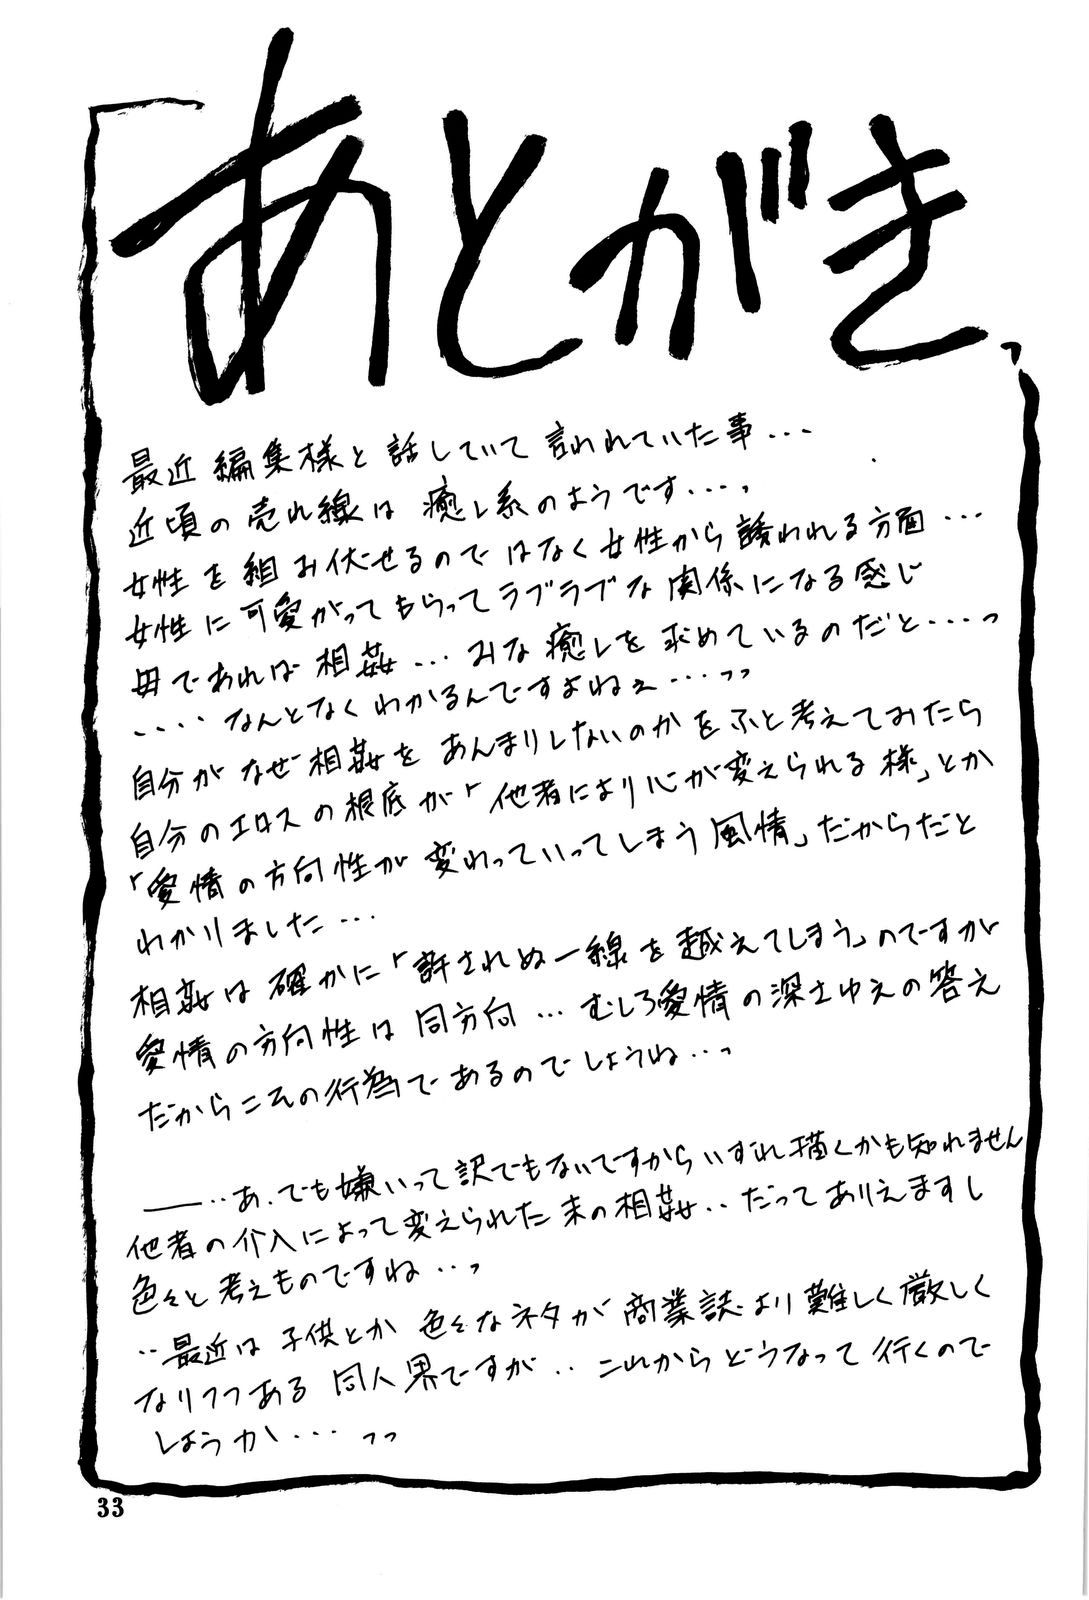 「あとがき」
最近編集様と話していて言われていた事...
近頃の売れ線は癒し系のようです....っ
女性を組み伏せるのではなく女性から誘われる方面...
女性に可愛がってもらってラブラブな関係になる感じ
母であれば相姦...みな癒しを求めているのだと...っ
....なんとなくわかるんですよねぇ...っっ
自分がなぜ相姦をあんまりしないのかをふと考えてみたら
自分のエロスの根底が「他者により心が変えられる様」とか
「愛情の方向性が変わっていってしまう風情」だからだと
わかりました...
相姦は確かに「許されぬ一線を越えてしまう」のですが
愛情の方向性は同方向...むしろ愛情の深さゆえの答え
だからこその行為であるのでしょうね...っ
――..あ、でも嫌いって訳でもないですからいずれ描くかも知れません
他者の介入によって変えられた末の相姦..だってありえますし
色々と考えものですね...っ
..最近は子供とか色々なネタが商業誌より難しく厳しく
なりつつある同人界ですが..これからどうなって行くので
しょうか...っっ
33